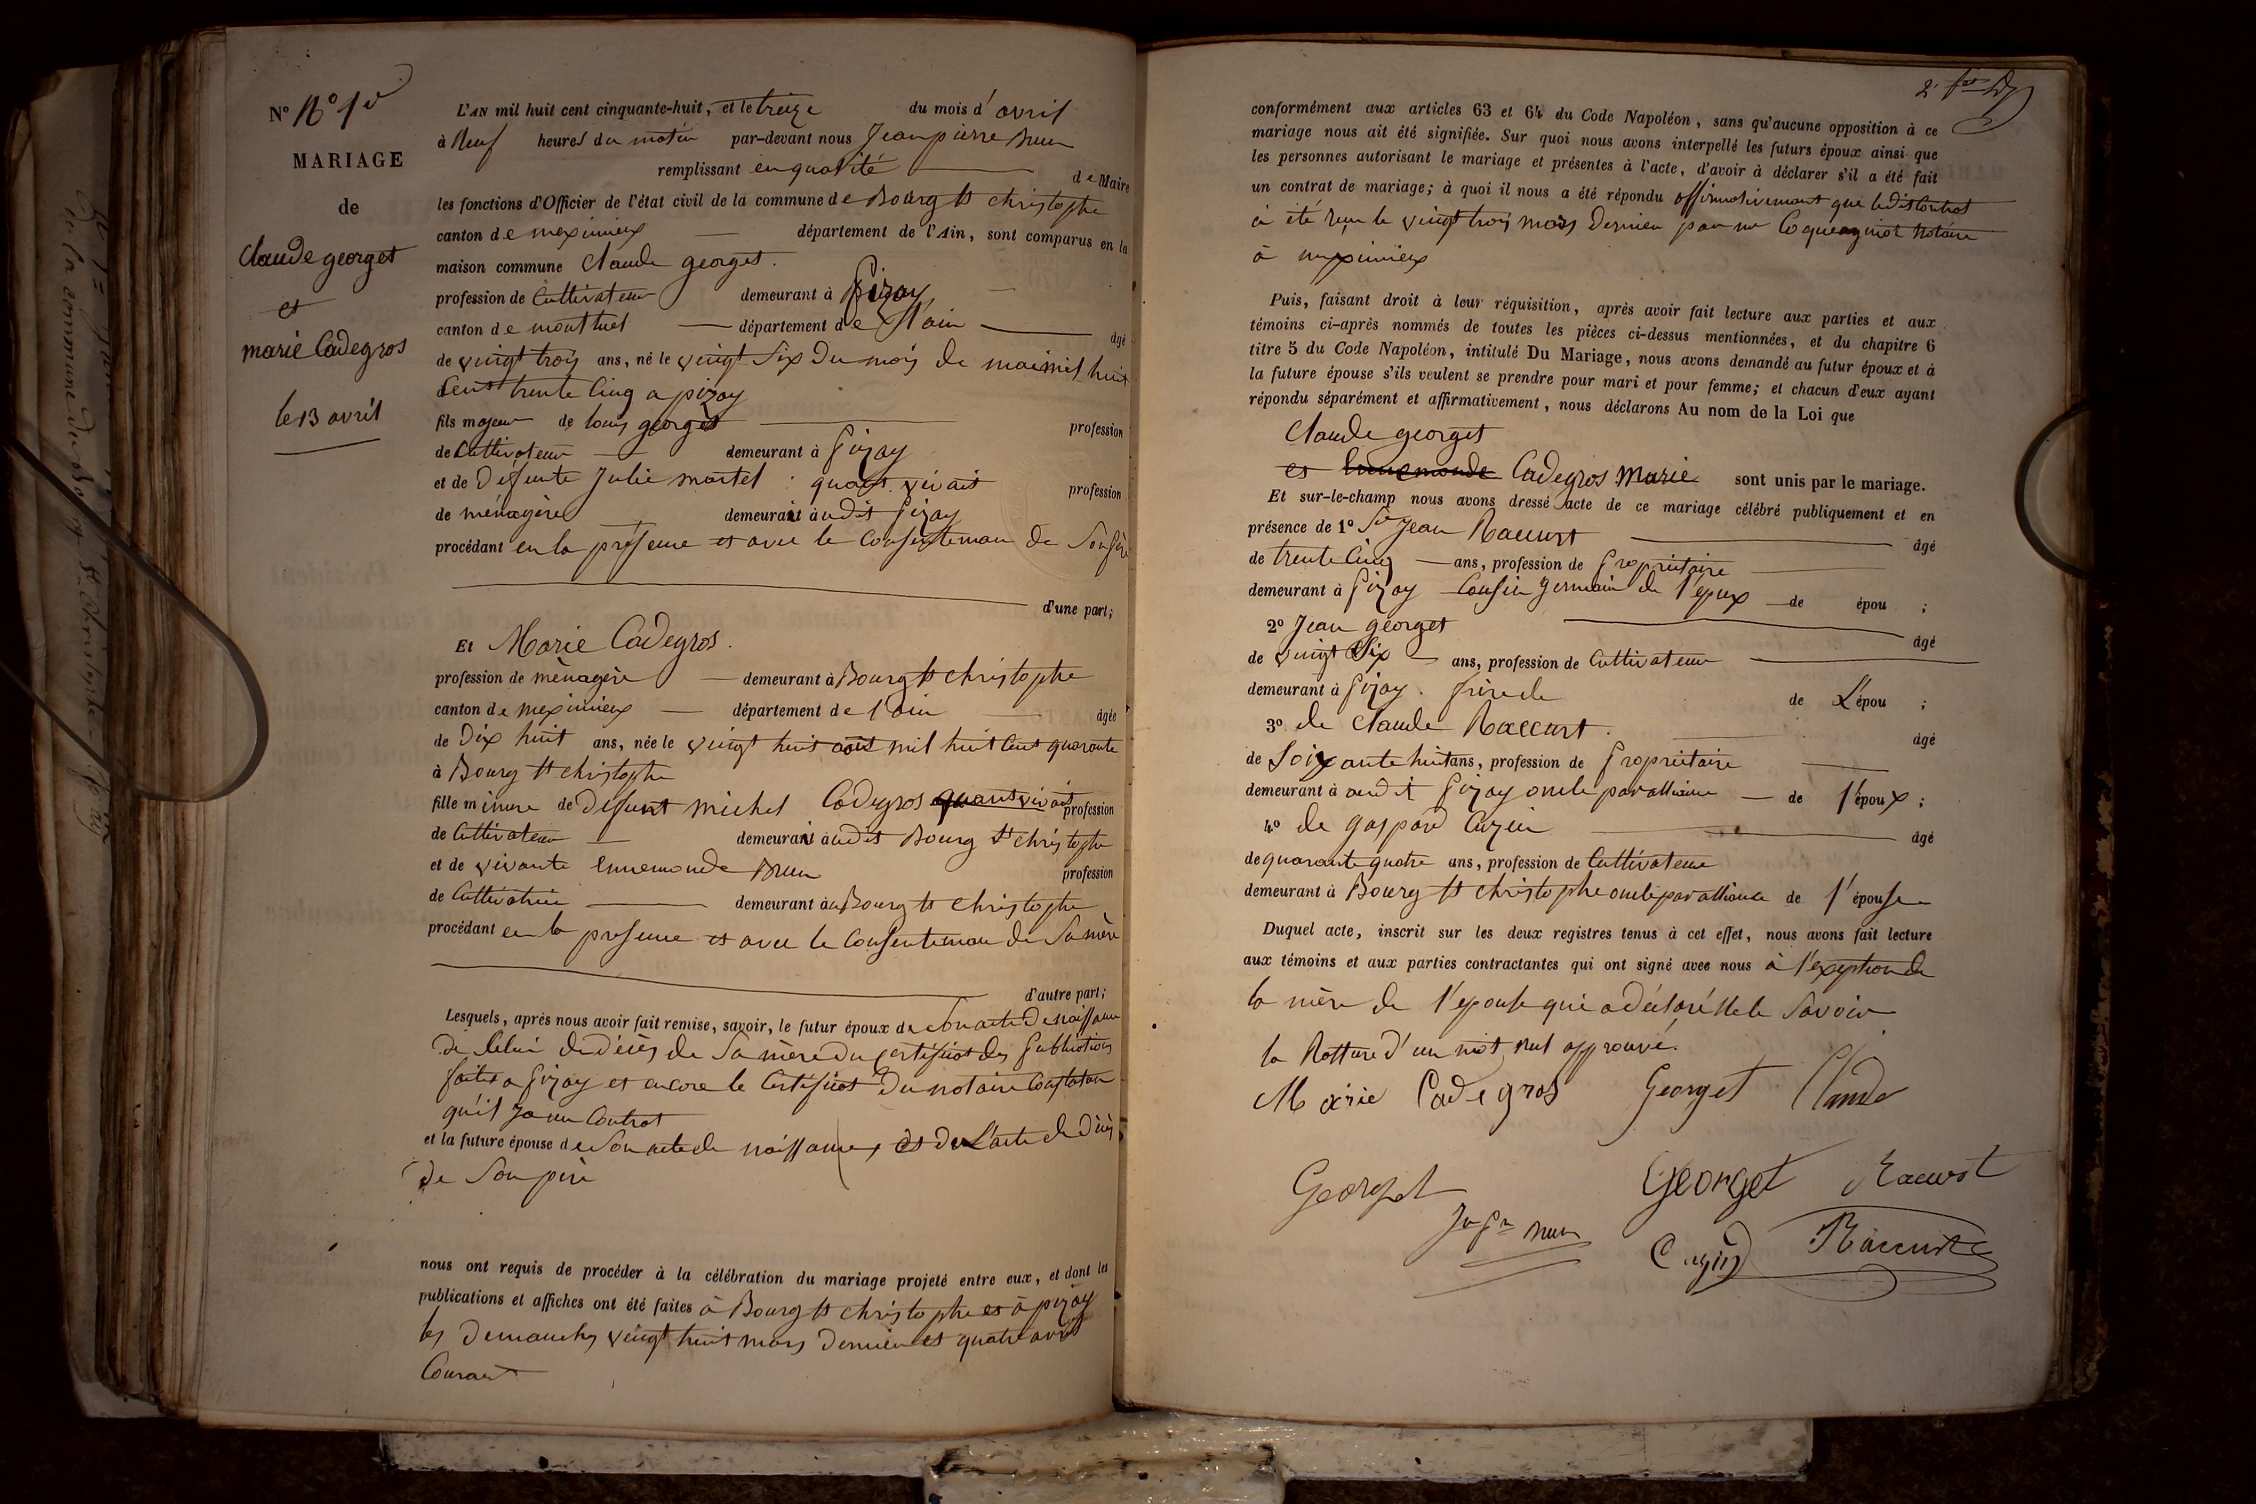 N° N° 1er
MARIAGE
de
Claude georget
et
marie Cadegros
le 13 avril
L'AN mil huit cent cinquante-huit, et le treize du mois d'avril
à Neuf heures du matin par-devant nous Jean pierre Brun
remplissant en qualité de Maire
les fonctions d'Officier de l'état civil de la commune de Bourg St christophe
canton de meximieux département de l'Ain, sont comparus en la
maison commune Claude georget.
profession de Cultivateur demeurant à Pizay
canton de montluel département de l'ain âgé
de vingt trois ans, né le vingt Six Du mois de mai mil huit
Cent trente Cinq a pizay
fils majeur de louis georget profession
de Cultivateur demeurant à Pizay
et de Défunte Julie martel quant vivait profession
de ménagère demeurait audit Pizay
procédant en la présence et avec le Consentement de Son père
d'une part;
Et Marie Cadegros.
profession de ménagère demeurant à Bourg St christophe
canton de meximieux département de l'ain âgée
de Dix huit ans, née le vingt huit août mil huit Cent quarante
à Bourg St christophe
fille mineure de Défunt michel Cadegros quant vivait profession
de Cultivateur demeurait audit Bourg St christophe
et de vivante Ennemonde Brun profession
de Cultivatrice demeurant au Bourg St christophe
procédant en la présence et avec le Consentement de Sa mère
d'autre part;
Lesquels, après nous avoir fait remise, savoir, le futur époux de Son acte De naissance
De Celui de décès de Sa mère du Certificat des Publications
faites a Pizay et encore le Certificat Du notaire Constatant
qu'il y a un Contrat
et la future épouse de Son acte de naissance, et de L'acte de Décès
De Son père
nous ont requis de procéder à la célébration du mariage projeté entre eux, et dont les
publications et affiches ont été faites à Bourg St christophe et à pizay
les Dimanches vingt huit mars Dernier et quatre avril
Courant
conformément aux articles 63 et 64 du Code Napoléon, sans qu'aucune opposition à ce
mariage nous ait été signifiée. Sur quoi nous avons interpellé les futurs époux ainsi que
les personnes autorisant le mariage et présentes à l'acte, d'avoir à déclarer s'il a été fait
un contrat de mariage; à quoi il nous a été répondu affirmativement que ledit Contrat
à été reçu le vingt trois mars Dernier par me Notaire
à meximieux
Puis, faisant droit à leur réquisition, après avoir fait lecture aux parties et aux
témoins ci-après nommés de toutes les pièces ci-dessus mentionnées, et du chapitre 6
titre 5 du Code Napoléon, intitulé Du Mariage, nous avons demandé au futur époux et à
la future épouse s'ils veulent se prendre pour mari et pour femme; et chacun d'eux ayant
répondu séparément et affirmativement, nous déclarons Au nom de la Loi que
Claude georget
et Ennemonde Cadegros Marie sont unis par le mariage.
Et sur-le-champ nous avons dressé acte de ce mariage célébré publiquement et en
présence de 1° Sr Jean Raccurt âgé
de trente Cinq ans, profession de Propriétaire
demeurant à Pizay Cousin germain de l'époux de épou ;
2° Jean georget âgé
de vingt Six ans, profession de Cultivateur
demeurant à Pizay. frère de de L'épou ;
3° de Claude Raccurt. âgé
de Soixante huit ans, profession de Propriétaire
demeurant à audit Pizay oncle par alliance de l'époux ;
4° de gaspard Cuzin âgé
de quarante quatre ans, profession de Cultivateur
demeurant à Bourg St christophe oncle par alliance de l'épouse
Duquel acte, inscrit sur les deux registres tenus à cet effet, nous avons fait lecture
aux témoins et aux parties contractantes qui ont signé avec nous à l'exeption de
la mère de l'épouse qui a déclaré ne le Savoir
la Rature d'un mot nul approuvé.
Marie Cadegros Georget Claude
Georget Georget Racurt
Jn Pre Brun Cuzin Raccurt